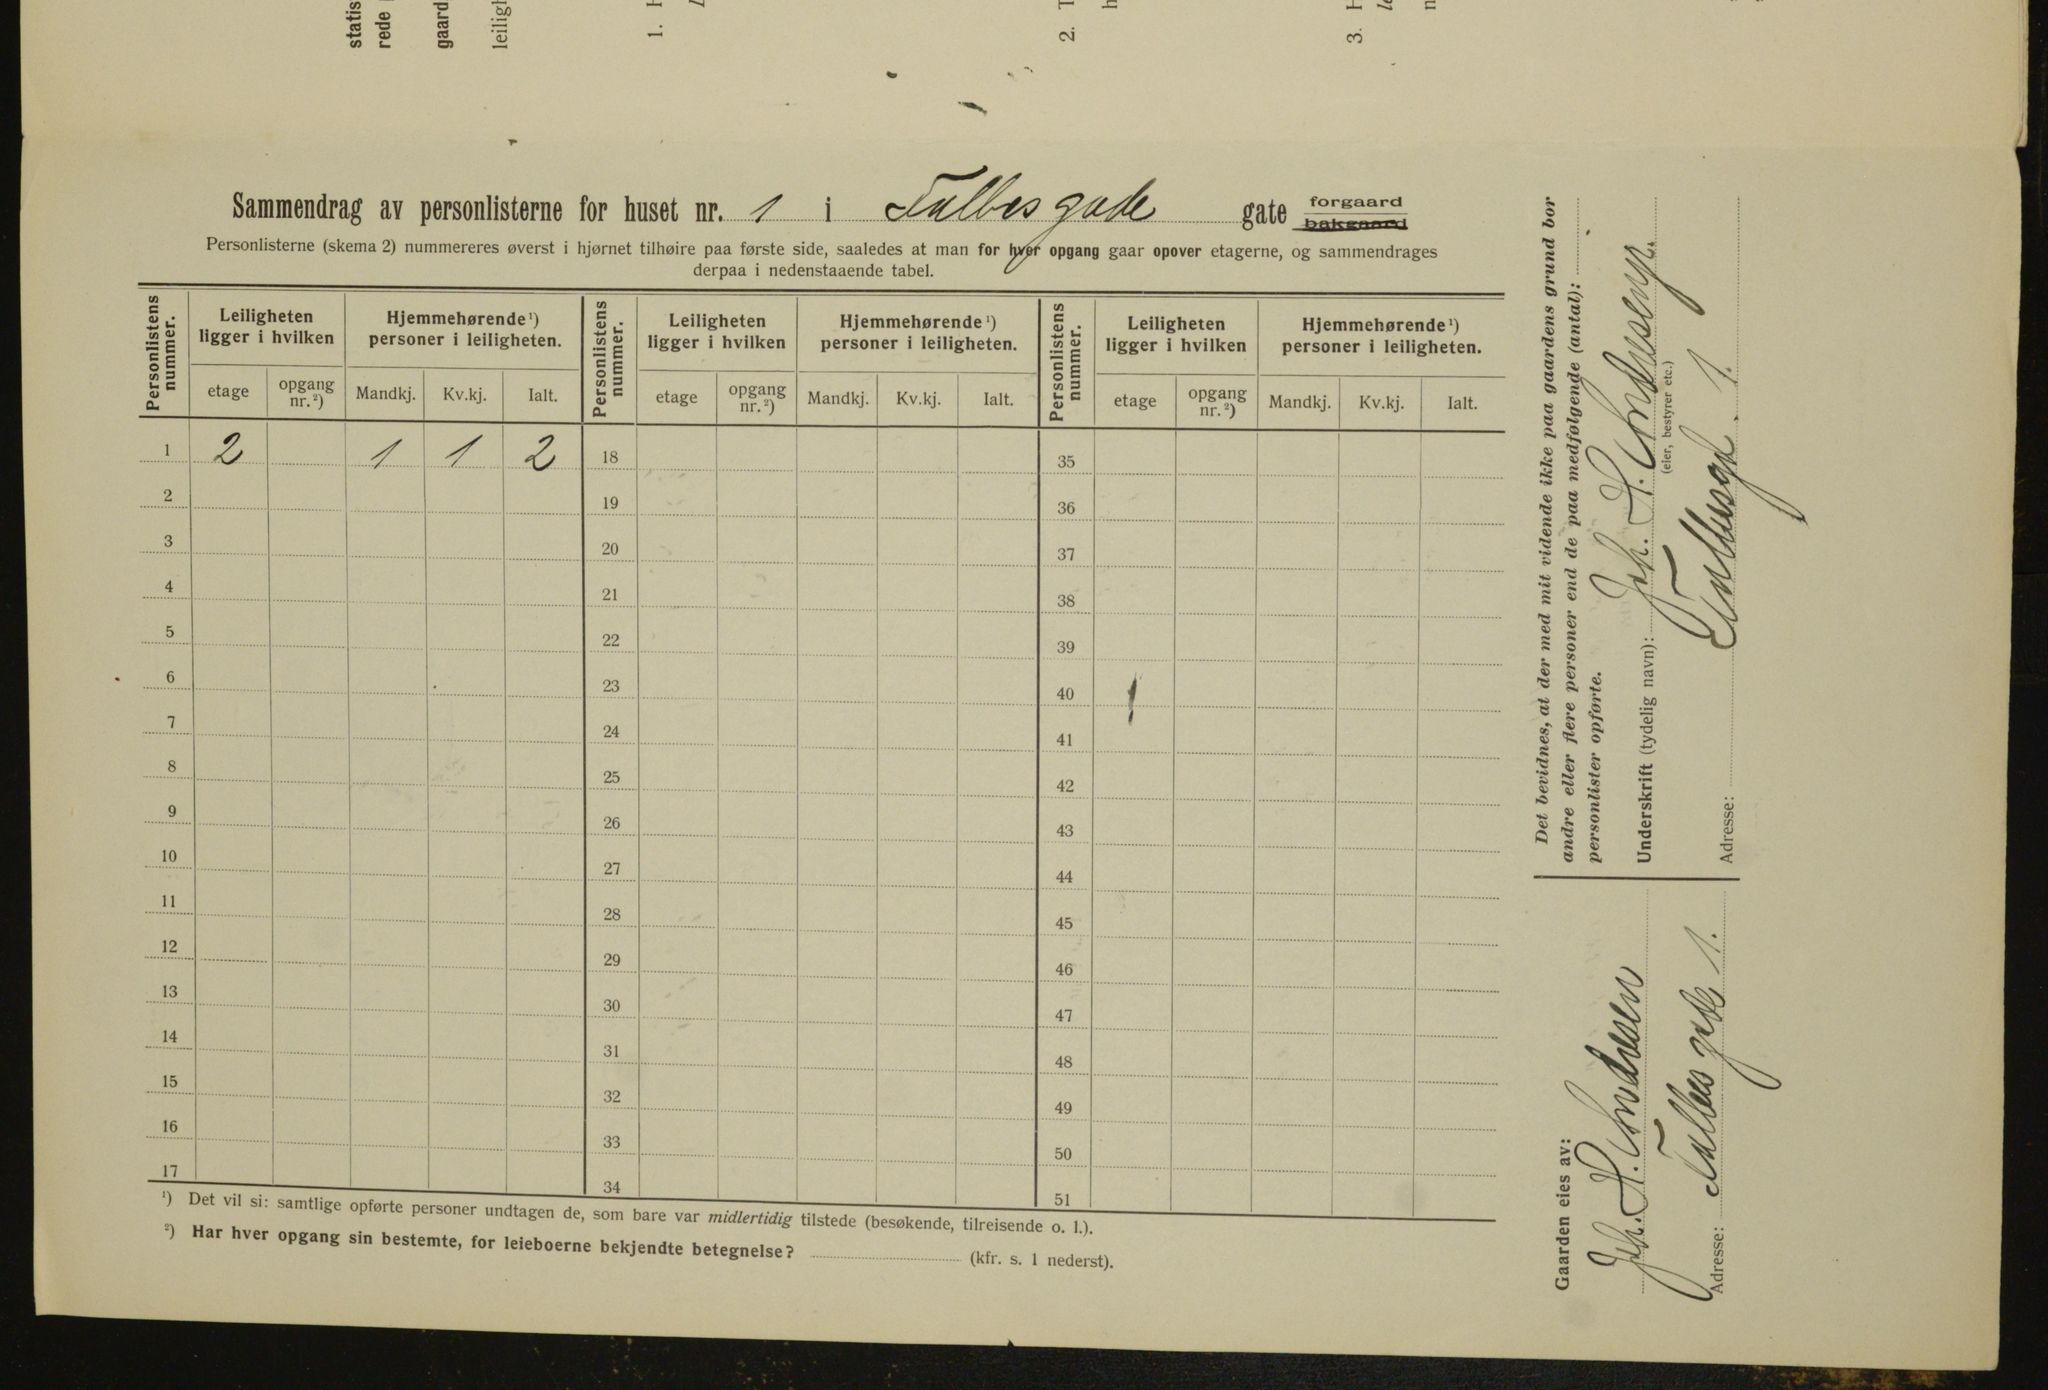 statis
rede
gaard
leiligh
1. H
2. T
h
3. H
le
n
Sammendrag av personlisterne for huset nr. 1 i Falbesgade gate forgaard
bakgaard
Personlisterne (skema 2) nummereres øverst i hjørnet tilhøire paa første side, saaledes at man for hver opgang gaar opover etagerne, og sammendrages
derpaa i nedenstaaende tabel.
Personlistens nummer. Leiligheten ligger i hvilken Hjemmehørende¹) personer i leiligheten. Personlistens nummer. Leiligheten ligger i hvilken Hjemmehørende¹) personer i leiligheten. Personlistens nummer. Leiligheten ligger i hvilken Hjemmehørende¹) personer i leiligheten.
etage opgang nr.²) Mandkj. Kv.kj. Ialt. etage opgang nr.²) Mandkj. Kv.kj. Ialt. etage opgang nr.²) Mandkj. Kv.kj. Ialt.
1 2 1 1 2 18 35
2 19 36
3 20 37
4 21 38
5 22 39
6 23 40
7 24 41
8 25 42
9 26 43
10 27 44
11 28 45
12 29 46
13 30 47
14 31 48
15 32 49
16 33 50
17 34 51
¹) Det vil si: samtlige opførte personer undtagen de, som bare var midlertidig tilstede (besøkende, tilreisende o. l.).
²) Har hver opgang sin bestemte, for leieboerne bekjendte betegnelse? (kfr. s. 1 nederst).
Det bevidnes, at der med mit vidende ikke paa gaardens grund bor
andre eller flere personer end de paa medfølgende (antal):
personlister opførte.
Underskrift (tydelig navn): Joh. H. Andresen
(eier, bestyrer etc.)
Adresse: Falbesgd. 1.
Gaarden eies av:
Joh. H. Andresen
Adresse: Falbes gade 1.